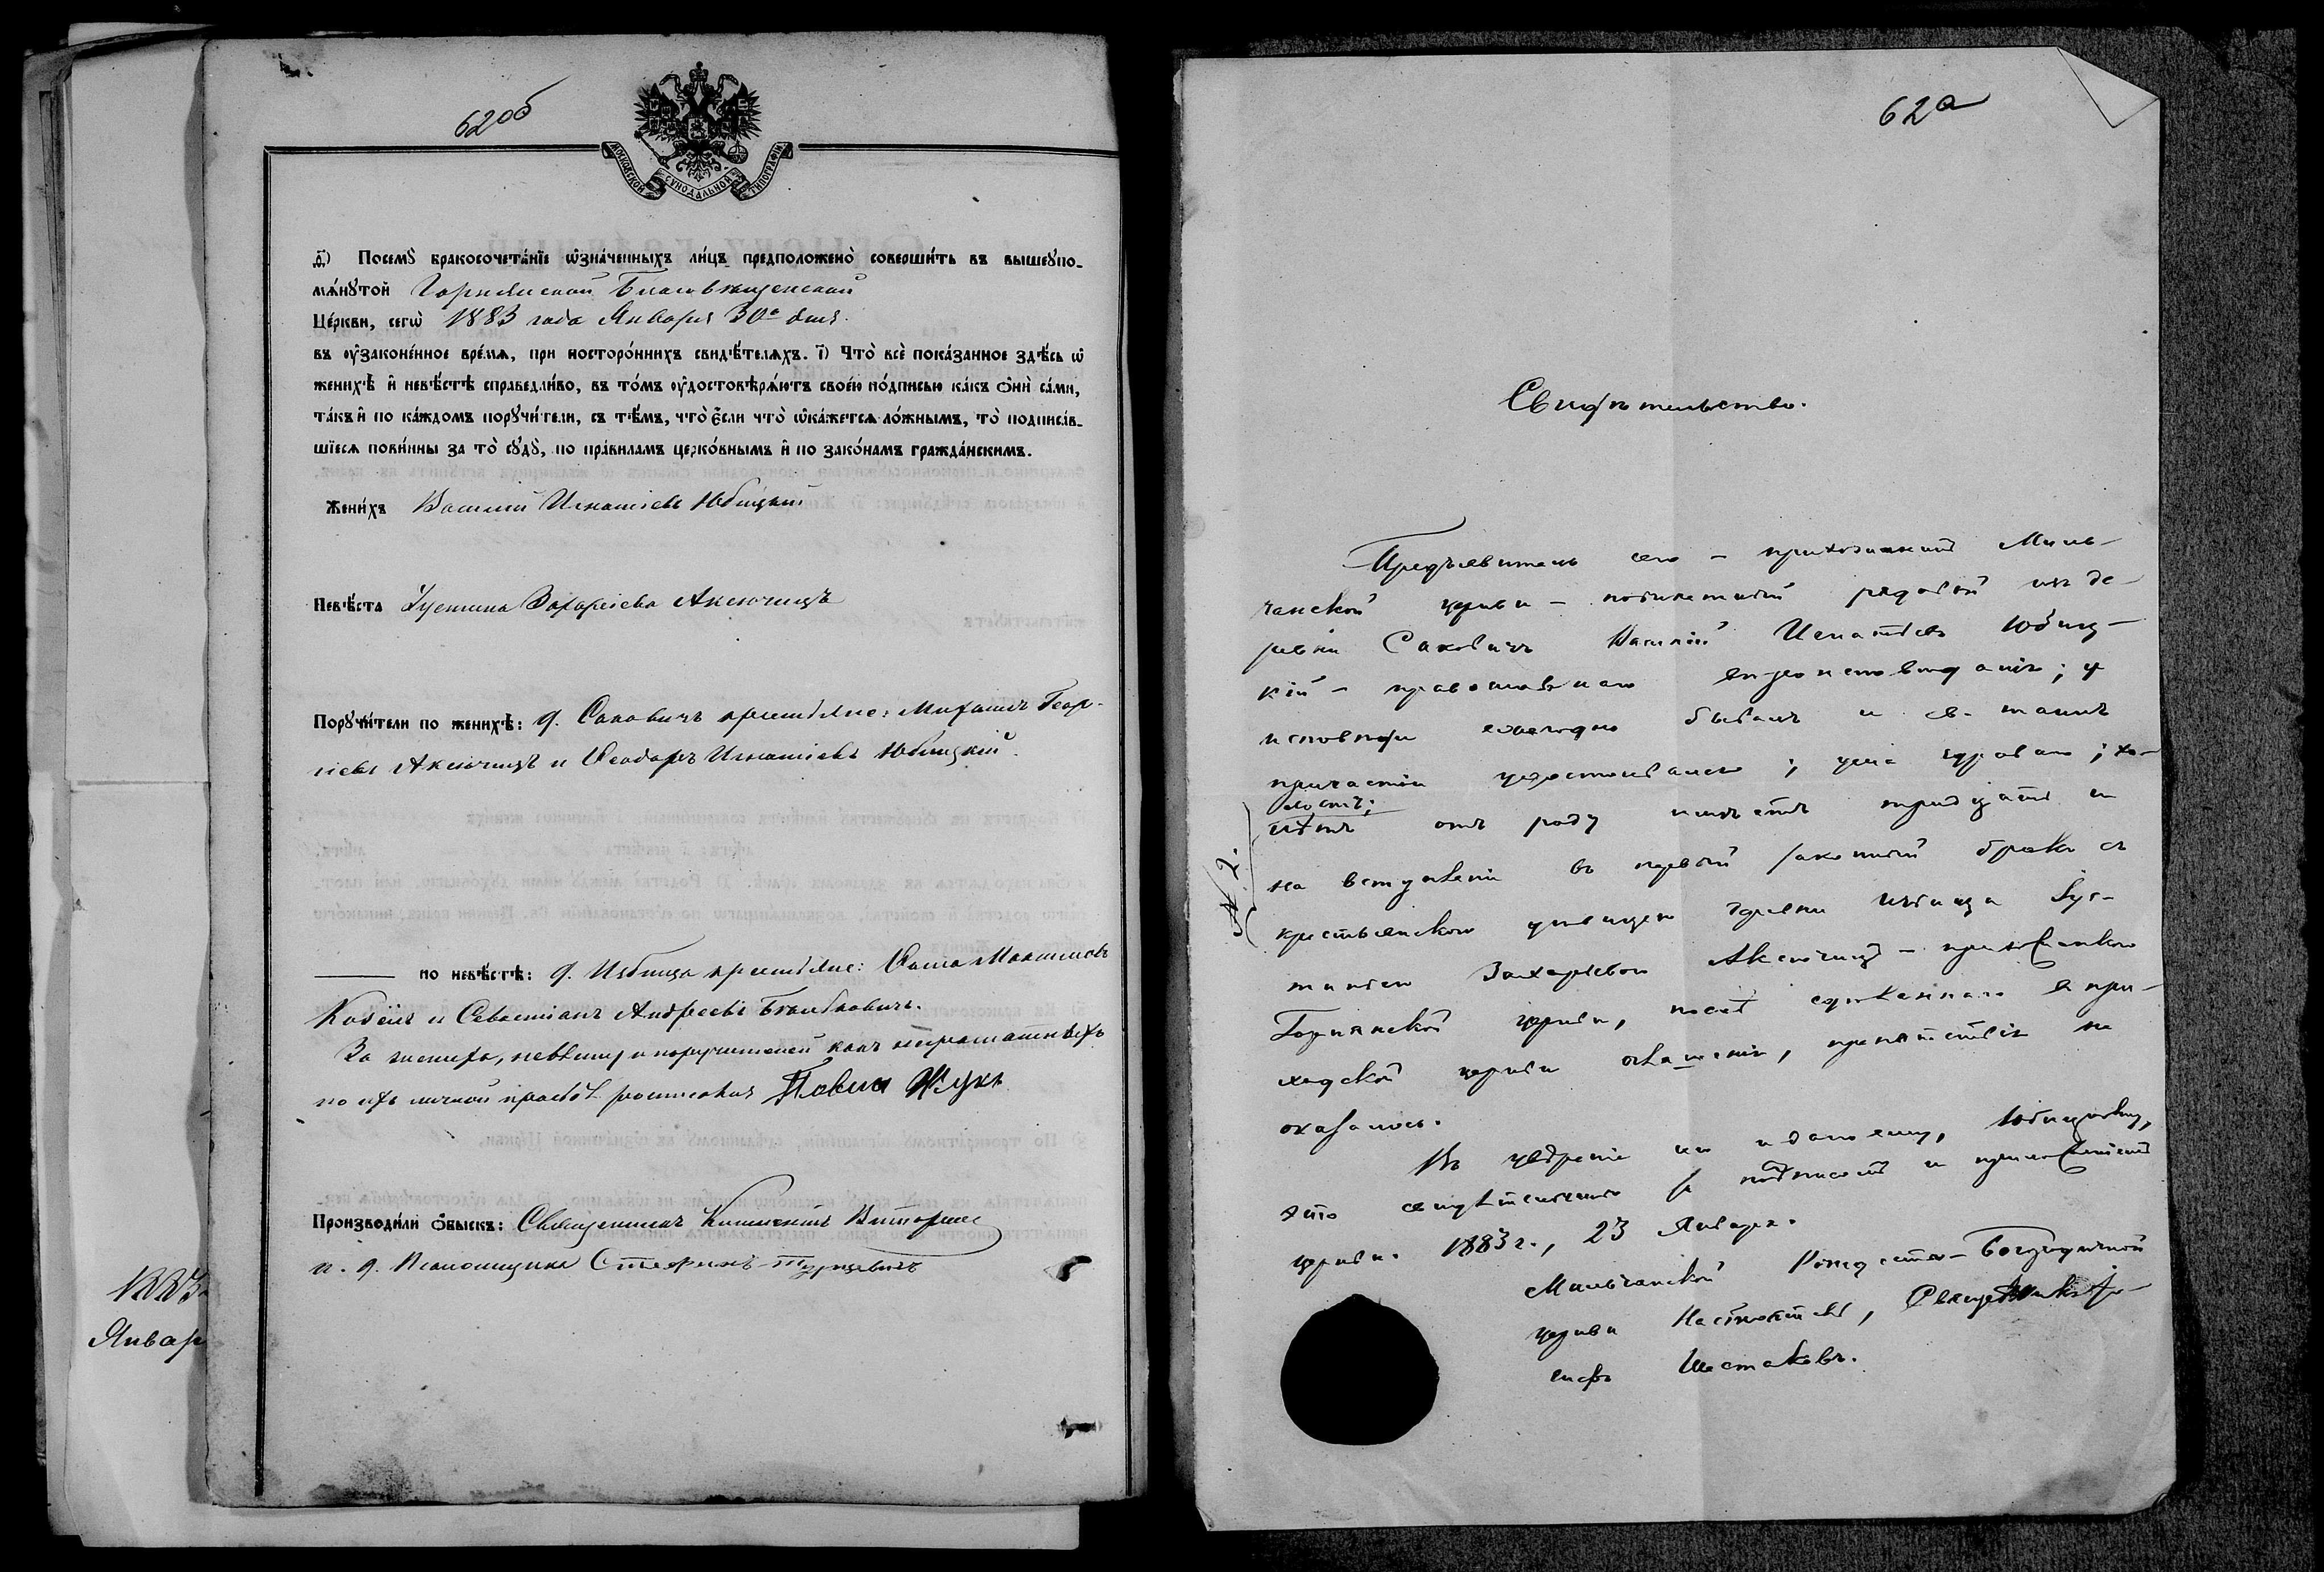 62об
МОСКОВСКОЙ СѴНОДАЛЬНОЙ ТИПОГРАФІИ
д҃) Посемꙋ̀ бракосочета́нїе ѡ҆зна́ченныхъ ли́цъ предположено̀ соверши́ть въ вышеꙋпо-
мѧ́нꙋтой Горнянской Благовѣщенской
Це́ркви, сегѡ̀ 1883 года Января 30го дня.
въ ᲂу҆законе́нное вре́мѧ, при посторо́ннихъ свидѣ́телѧхъ. і҃) Что̀ всѐ пока́занное здѣ́сь ѡ҆
женихѣ̀ и҆ невѣ́стѣ справедли́во, въ то́мъ ᲂу҆достовѣрѧ́ютъ свое́ю по́дписью ка́къ ѻ҆нѝ са́ми,
та́къ и҆ по ка́ждомъ порꙋчи́тели, съ тѣ́мъ, что̀ є҆́сли что̀ ѡ҆ка́жетсѧ ло́жнымъ, то̀ подписа́в-
шїесѧ пови́нны за то̀ сꙋдꙋ̀, по пра́виламъ церко́внымъ и҆ по зако́намъ гражда́нскимъ.
Жени́хъ Василій Игнатіевъ Юбицкій
Невѣ́ста Іустина Захаріева Аксючицъ
Порꙋчи́тели по женихѣ̀: д. Саковичъ крестьяне: Михаилъ Геор-
гіевъ Аксючицъ и Ѳеодоръ Игнатіевъ Юбицкій.
по невѣ́стѣ: д. Избища крестьяне: Ѳома
и Севастіанъ Андреевъ
За жениха, невѣсту и поручителей какъ неграматныхъ
по ихъ личной просьбѣ росписался Павелъ Жукъ
Производи́ли ѻ҆́быскъ: Священникъ
и. д. Псаломщика Стефанъ
Январ
62а
Свидѣтельство.
Предъявитель сего – прихожанинъ Миль-
чанской церкви – рядовой изъ де-
ревни Саковичъ Василій Игнатіевъ Юбиц-
кій – православнаго вѣроисповѣданія; у
исповѣди ежегодно бывалъ и св. таинъ
причастія удостоивался; ума здраваго; хо-
лостъ;
лѣтъ отъ роду имѣетъ тридцать и
на вступленіи въ первый законный бракъ съ
крестьянскою дѣвицею деревни Избища Іус-
тиною Захаріевою Аксючицъ – прихожанкою
Горнянской церкви, послѣ сдѣланнаго въ при-
ходской церкви оглашенія, препятствія не
оказалось.
№ 2.
Въ увѣреніе чего и дано ему, Юбицкому,
это свидѣтельство за подписомъ и приложеніемъ
церкви. 1883 г., 23 Января.
Мильчанской Рождество-Богородичной
церкви Настоятель, Священникъ Іо-
сифъ Шестаковъ.